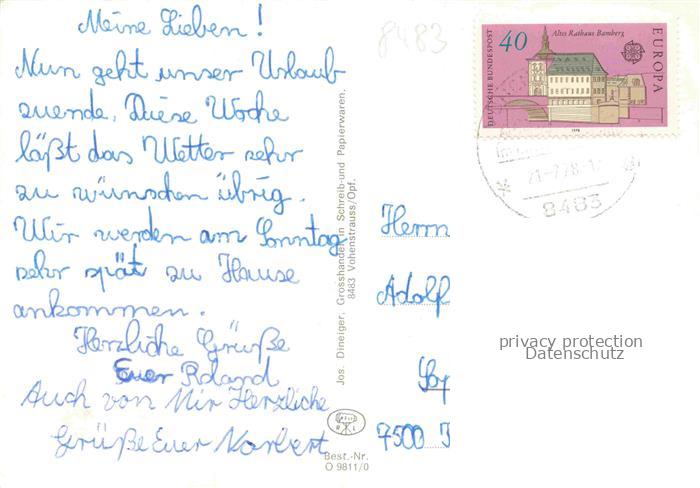 Meine Lieben!
Nun geht unser Urlaub
zuende. Diese Woche
läßt das Wetter sehr
zu wünschen übrig.
Wir werden am Sonntag
sehr spät zu Hause
ankommen.
Herzliche Grüße
Euer Roland
Auch von Mir Herzliche
Grüße Euer Norbert
8483
Jos. Dineiger, Grosshandel in Schreib-und Papierwaren,
8483 Vohenstrauss/Opf.
Best.-Nr.
O 9811/0
DEUTSCHE BUNDESPOST
40
Altes Rathaus Bamberg
EUROPA
1978
21-7.78-1
8483
Herrn
Adolf
7500
privacy protection
Datenschutz